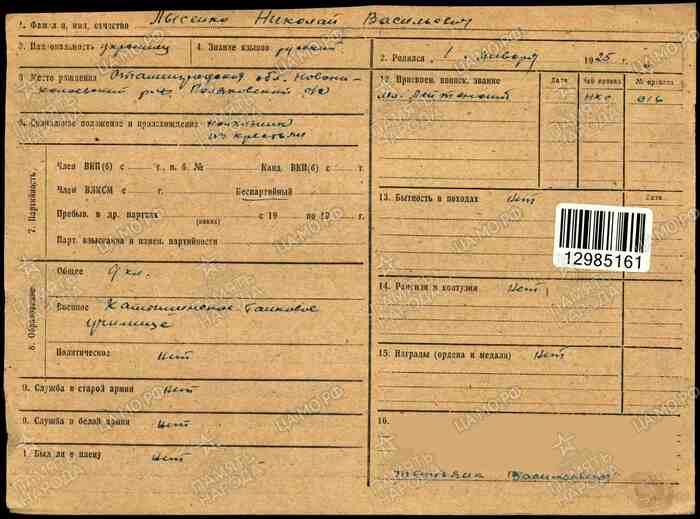 1. Фамилия, имя, отчество Лысенко Николай Васильевич
3. Национальность украинец
4. Знание языков русский
2. Родился 1 января 1925 г.
5 Место рождения Сталинградская обл. Новони-
колаевский р-н Поляковский с/с
12. Присвоен. воинск. звание Дата Чей приказ № приказа
мл. лейтенант НКО 016
6. Социальное положение и происхождение
из крестьян
7. Партийность
Член ВКП(б) с г. п. б. № Канд. ВКП(б) с г.
Член ВЛКСМ с г. Беспартийный
Пребыв. в др. партиях (каких) с 19 по 19 г.
Парт. взыскания и измен. партийности
13. Бытность в походах нет Дата
12985161
8. Образование
Общее 9 кл.
Военное Камышинское Танковое
училище
Политическое нет
14. Ранения и контузии нет
15. Награды (ордена и медали) нет
9. Служба в старой армии нет
0. Служба в белой армии нет
1 Был ли в плену нет
16.
Васильевна
ПАМЯТЬ НАРОДА
ЦАМО.РФ